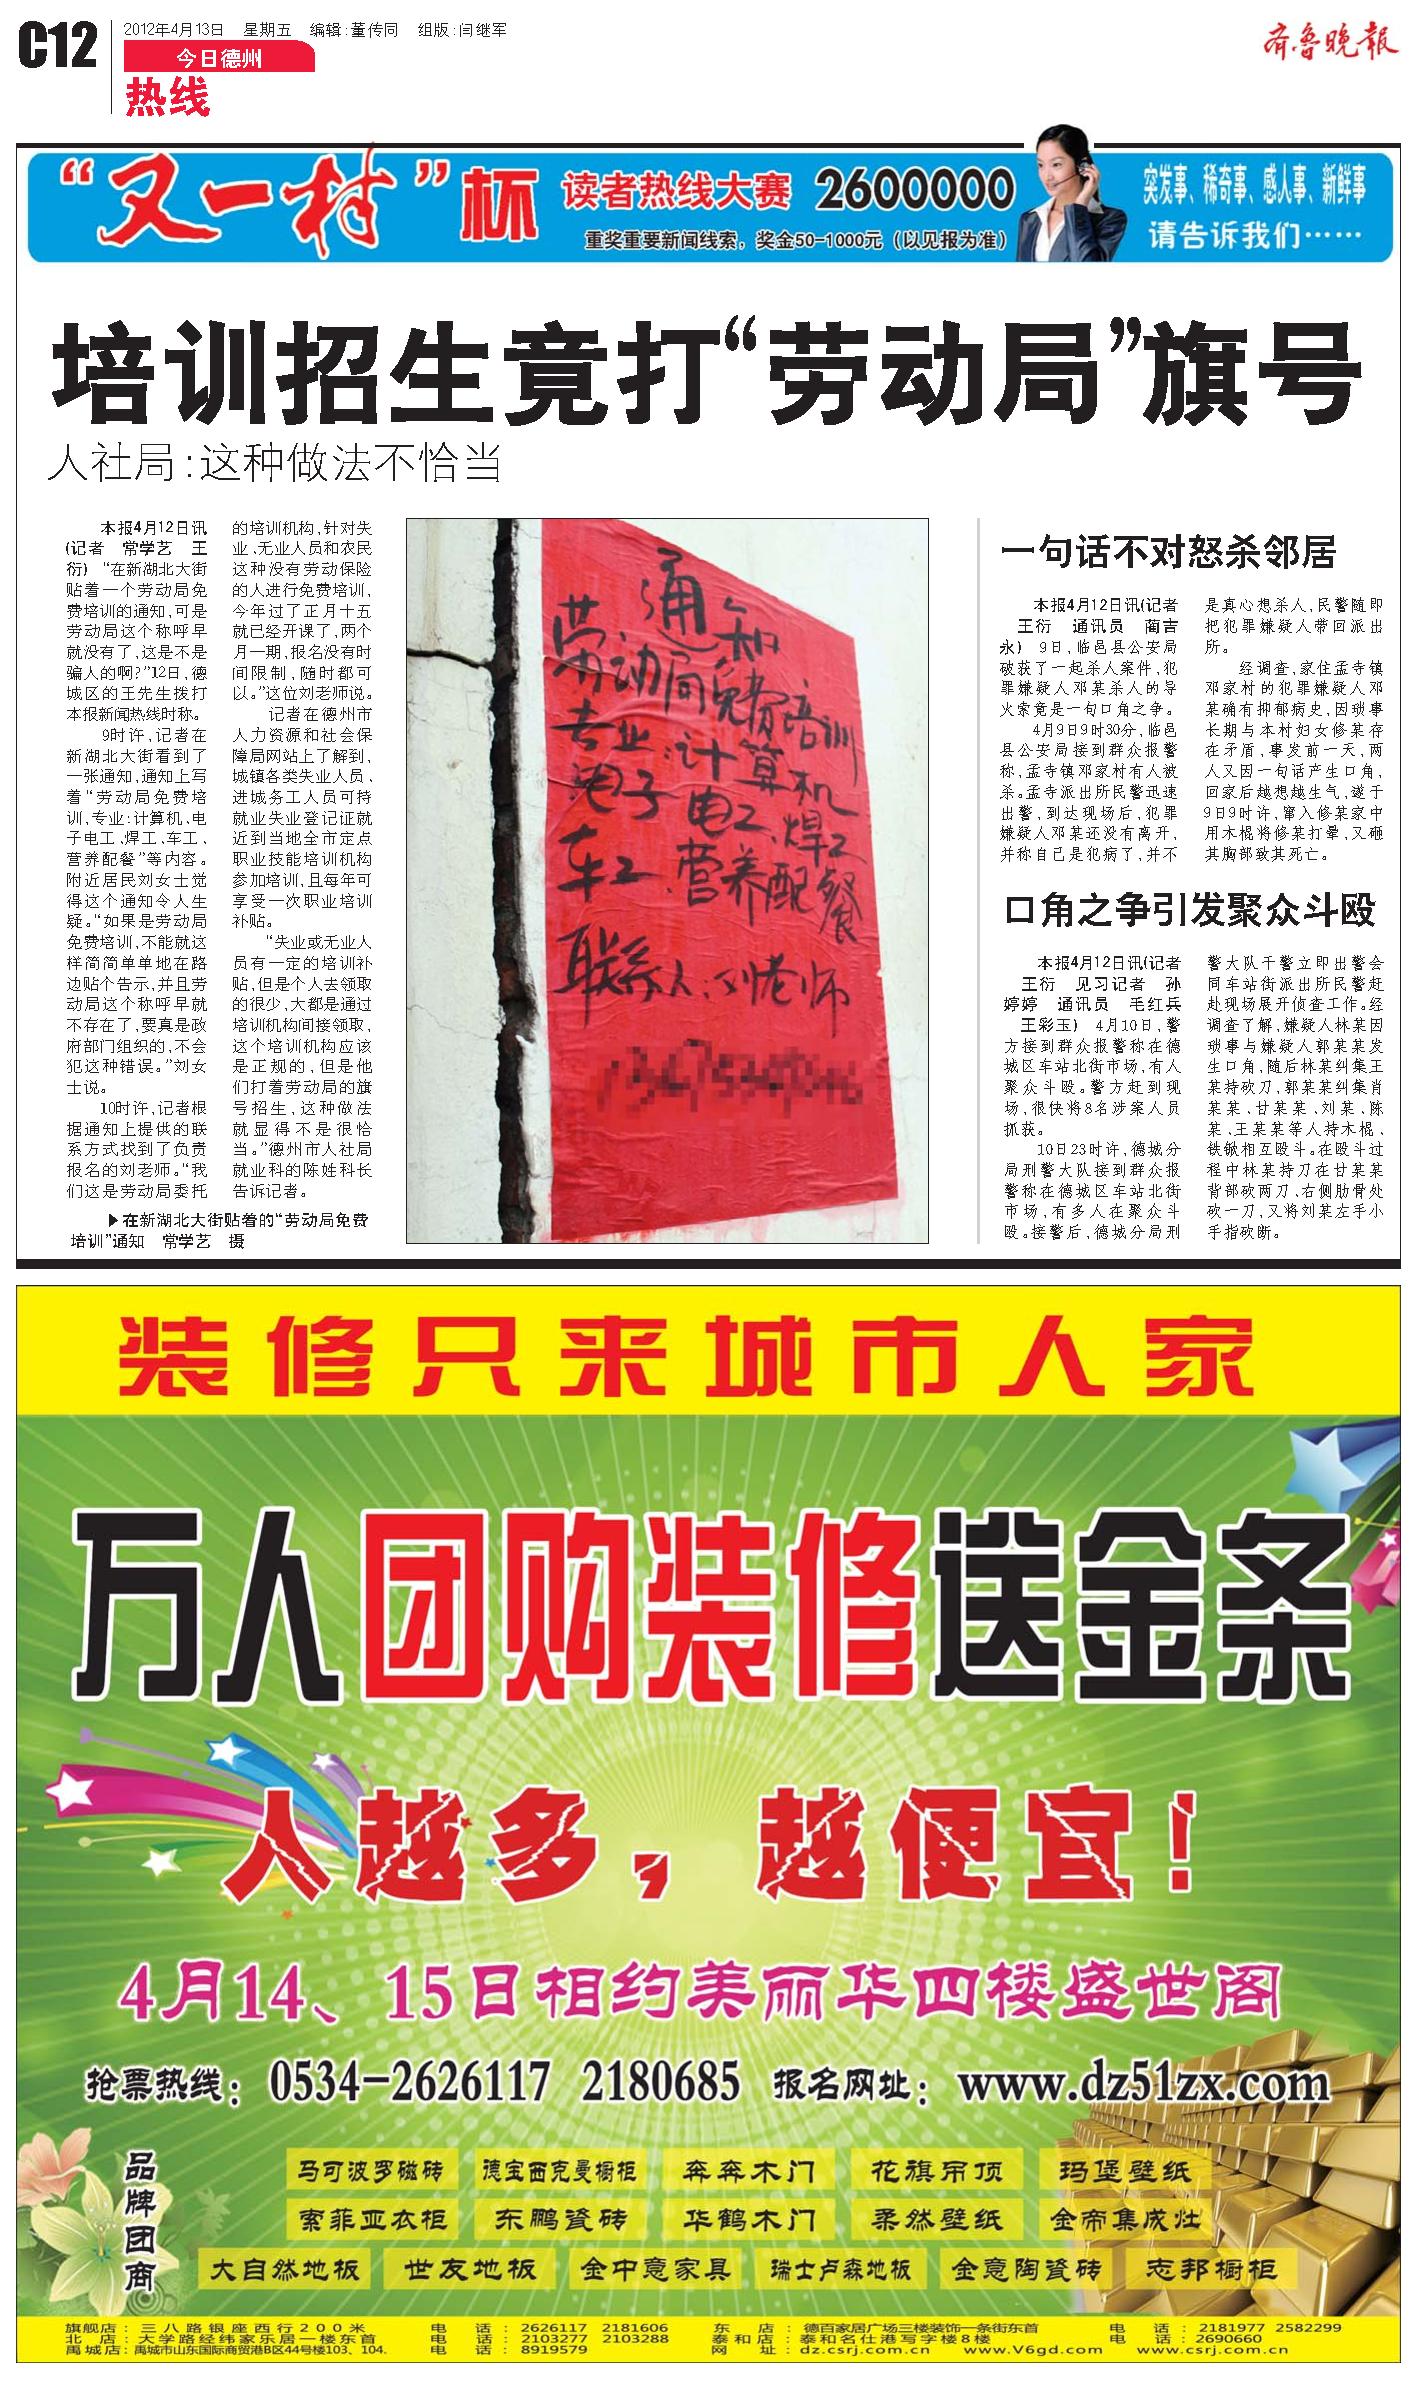 C12
2012年4月13日 星期五 编辑:董传同 组版:闫继军
今日德州
热线
齐鲁晚报
“又一村”杯
读者热线大赛 2600000
重奖重要新闻线索，奖金50-1000元（以见报为准）
突发事、稀奇事、感人事、新鲜事
请告诉我们……
培训招生竟打“劳动局”旗号
人社局:这种做法不恰当
本报4月12日讯
(记者 常学艺 王
衍) “在新湖北大街
贴着一个劳动局免
费培训的通知,可是
劳动局这个称呼早
就没有了,这是不是
骗人的啊?”12日,德
城区的王先生拨打
本报新闻热线时称。
9时许,记者在
新湖北大街看到了
一张通知,通知上写
着“劳动局免费培
训,专业:计算机、电
子电工、焊工、车工、
营养配餐”等内容。
附近居民刘女士觉
得这个通知令人生
疑。“如果是劳动局
免费培训,不能就这
样简简单单地在路
边贴个告示,并且劳
动局这个称呼早就
不存在了,要真是政
府部门组织的,不会
犯这种错误。”刘女
士说。
10时许,记者根
据通知上提供的联
系方式找到了负责
报名的刘老师。“我
们这是劳动局委托
的培训机构,针对失
业、无业人员和农民
这种没有劳动保险
的人进行免费培训,
今年过了正月十五
就已经开课了,两个
月一期,报名没有时
间限制,随时都可
以。”这位刘老师说。
记者在德州市
人力资源和社会保
障局网站上了解到,
城镇各类失业人员、
进城务工人员可持
就业失业登记证就
近到当地全市定点
职业技能培训机构
参加培训,且每年可
享受一次职业培训
补贴。
“失业或无业人
员有一定的培训补
贴,但是个人去领取
的很少,大都是通过
培训机构间接领取,
这个培训机构应该
是正规的,但是他
们打着劳动局的旗
号招生,这种做法
就显得不是很恰
当。”德州市人社局
就业科的陈姓科长
告诉记者。
▶在新湖北大街贴着的“劳动局免费
培训”通知 常学艺 摄
通知
劳动局免费培训
专业:计算机
电子 电工.焊工
车工.营养配餐
联系人:刘老师
一句话不对怒杀邻居
本报4月12日讯(记者
王衍 通讯员 蔺吉
永) 9日,临邑县公安局
破获了一起杀人案件,犯
罪嫌疑人邓某杀人的导
火索竟是一句口角之争。
4月9日9时30分,临邑
县公安局接到群众报警
称,孟寺镇邓家村有人被
杀。孟寺派出所民警迅速
出警,到达现场后,犯罪
嫌疑人邓某还没有离开,
并称自己是犯病了,并不
是真心想杀人,民警随即
把犯罪嫌疑人带回派出
所。
经调查,家住孟寺镇
邓家村的犯罪嫌疑人邓
某确有抑郁病史,因琐事
长期与本村妇女修某存
在矛盾,事发前一天,两
人又因一句话产生口角,
回家后越想越生气,遂于
9日9时许,窜入修某家中
用木棍将修某打晕,又砸
其胸部致其死亡。
口角之争引发聚众斗殴
本报4月12日讯(记者
王衍 见习记者 孙
婷婷 通讯员 毛红兵
王彩玉) 4月10日,警
方接到群众报警称在德
城区车站北街市场,有人
聚众斗殴。警方赶到现
场,很快将8名涉案人员
抓获。
10日23时许,德城分
局刑警大队接到群众报
警称在德城区车站北街
市场,有多人在聚众斗
殴。接警后,德城分局刑
警大队干警立即出警会
同车站街派出所民警赶
赴现场展开侦查工作。经
调查了解,嫌疑人林某因
琐事与嫌疑人郭某某发
生口角,随后林某纠集王
某持砍刀,郭某某纠集肖
某某、甘某某、刘某、陈
某、王某某等人持木棍、
铁锨相互殴斗。在殴斗过
程中林某持刀在甘某某
背部砍两刀、右侧肋骨处
砍一刀,又将刘某左手小
手指砍断。
装修只来城市人家
万人团购装修送金条
人越多，越便宜！
4月14、15日相约美丽华四楼盛世阁
抢票热线：0534-2626117 2180685 报名网址：www.dz51zx.com
品牌团商
马可波罗磁砖 德宝西克曼橱柜 奔奔木门 花旗吊顶 玛堡壁纸
索菲亚衣柜 东鹏瓷砖 华鹤木门 柔然壁纸 金帝集成灶
大自然地板 世友地板 金中意家具 瑞士卢森地板 金意陶瓷砖 志邦橱柜
旗舰店：三八路银座西行200米 电话：2626117 2181606 东店：德百家居广场三楼装饰一条街东首 电话：2181977 2582299
北店：大学路经纬家乐居一楼东首 电话：2103277 2103288 泰和店：泰和名仕港写字楼8楼 电话：2690660
禹城店：禹城市山东国际商贸港B区44号楼103、104. 电话：8919579 网址：dz.csrj.com.cn www.V6gd.com www.csrj.com.cn